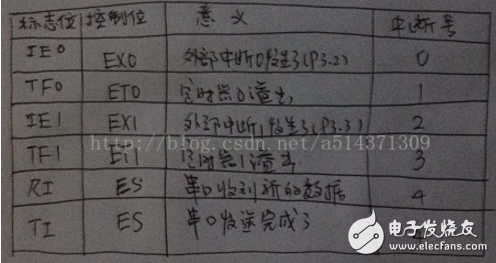 标志位 控制位 意义 中断号
IE0 EX0 外部中断0发生了(P3.2) 0
TF0 ET0 定时器0溢出 1
IE1 EX1 外部中断1发生了(P3.3) 2
http://blog.csdn.net/a514371309
TF1 ET1 定时器1溢出 3
RI ES 串口收到新的数据 4
TI ES 串口发送完成了
电子发烧友
www.elecfans.com